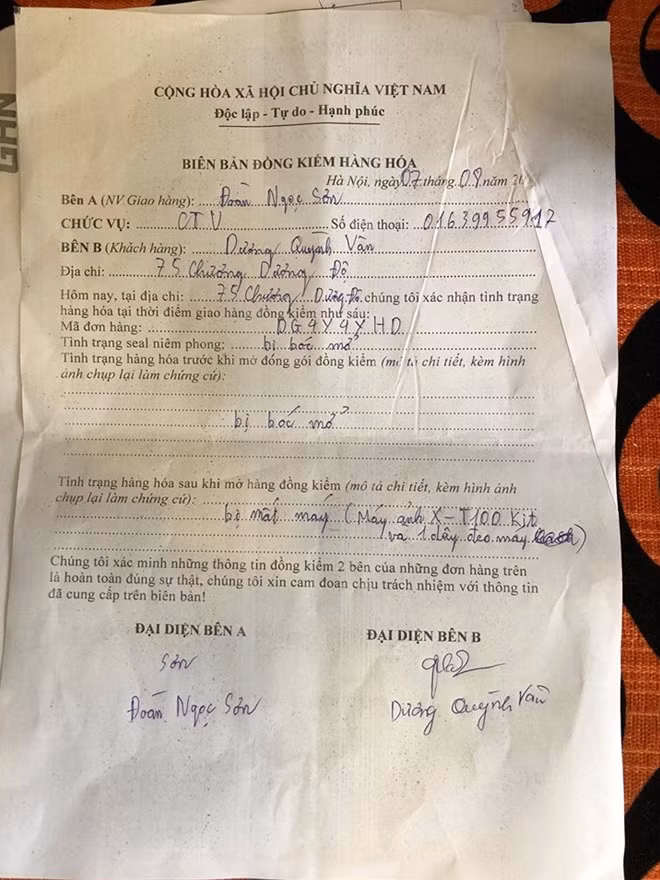 GAN
CỘNG HÒA XÃ HỘI CHỦ NGHĨA VIỆT NAM
Độc lập - Tự do - Hạnh phúc
BIÊN BẢN ĐỒNG KIỂM HÀNG HÓA
Hà Nội, ngày 07 tháng 08 năm 20
Bên A (NV Giao hàng): Đoàn Ngọc Sơn
CHỨC VỤ: CTV Số điện thoại: 01639955912
BÊN B (Khách hàng): Dương Quỳnh Vân
Địa chỉ: 75 Chương Dương Độ
Hôm nay, tại địa chỉ: 75 Chương Dương Độ, chúng tôi xác nhận tình trạng
hàng hóa tại thời điểm giao hàng đồng kiểm như sau:
Mã đơn hàng: DG9Y9YHD
Tình trạng seal niêm phong: bị bóc mở
Tình trạng hàng hóa trước khi mở đóng gói đồng kiểm (mô tả chi tiết, kèm hình
ảnh chụp lại làm chứng cứ):
bị bóc mở
Tình trạng hàng hóa sau khi mở hàng đồng kiểm (mô tả chi tiết, kèm hình ảnh
chụp lại làm chứng cứ):
bị mất máy (Máy ảnh X-T100 Kit
và 1 dây đeo máy )
Chúng tôi xác minh những thông tin đồng kiểm 2 bên của những đơn hàng trên
là hoàn toàn đúng sự thật, chúng tôi xin cam đoan chịu trách nhiệm với thông tin
đã cung cấp trên biên bản!
ĐẠI DIỆN BÊN A ĐẠI DIỆN BÊN B
Sơn
Đoàn Ngọc Sơn Dương Quỳnh Vân